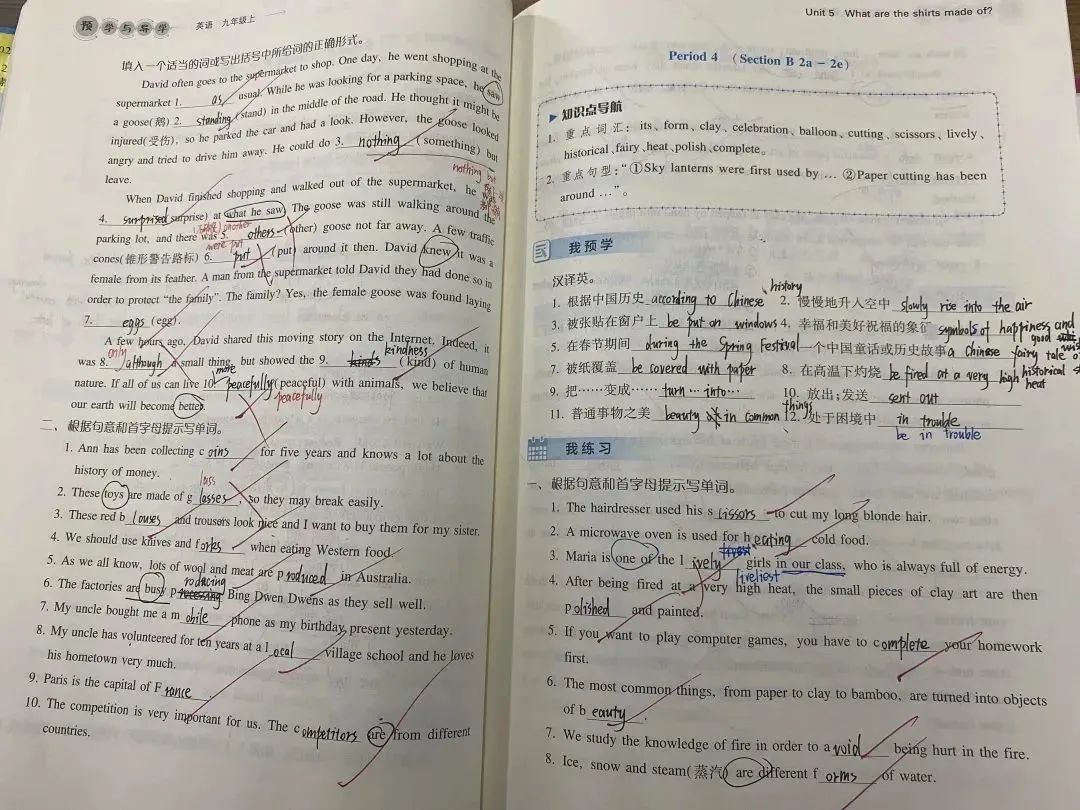 预学与导学 英语 九年级上
填入一个适当的词或写出括号中所给词的正确形式。
David often goes to the supermarket to shop. One day, he went shopping at the
supermarket 1. as usual. While he was looking for a parking space, he saw
a goose(鹅) 2. standing (stand) in the middle of the road. He thought it might be
injured(受伤), so he parked the car and had a look. However, the goose looked
angry and tried to drive him away. He could do 3. nothing (something) but
leave.
nothing but
When David finished shopping and walked out of the supermarket, he was
4. surprised (surprise) at what he saw. The goose was still walking around the
another
parking lot, and there was 5. others (other) goose not far away. A few traffic
were put
cones(锥形警告路标) 6. put (put) around it then. David knew it was a
female from its feather. A man from the supermarket told David they had done so in
order to protect “the family”. The family? Yes, the female goose was found laying
7. eggs (egg).
A few hours ago, David shared this moving story on the Internet. Indeed, it
only
kindness
was 8. although a small thing, but showed the 9. kinds (kind) of human
more
nature. If all of us can live 10. peacefully (peaceful) with animals, we believe that
peacefully
our earth will become better.
二、根据句意和首字母提示写单词。
1. Ann has been collecting c oins for five years and knows a lot about the
history of money.
lass
2. These toys are made of g lasses, so they may break easily.
3. These red b louses and trousers look nice and I want to buy them for my sister.
4. We should use knives and f orks when eating Western food.
5. As we all know, lots of wool and meat are p roduced in Australia.
roducing
6. The factories are busy p Bing Dwen Dwens as they sell well.
7. My uncle bought me a m obile phone as my birthday present yesterday.
8. My uncle has volunteered for ten years at a l ocal village school and he loves
his hometown very much.
9. Paris is the capital of F rance.
10. The competition is very important for us. The c ompetitors are from different
countries.
Unit 5 What are the shirts made of?
Period 4 (Section B 2a – 2e)
知识点导航
1. 重点词汇: its、form、clay、celebration、balloon、cutting、scissors、lively、
historical、fairy、heat、polish、complete。
2. 重点句型:“①Sky lanterns were first used by … ②Paper cutting has been
around …”。
我预学
汉译英。
history
1. 根据中国历史 according to Chinese 2. 慢慢地升入空中 slowly rise into the air
3. 被张贴在窗户上 be put on windows 4. 幸福和美好祝福的象征 symbols of happiness and
good
5. 在春节期间 during the Spring Festival 一个中国童话或历史故事 a Chinese fairy tale
historical
7. 被纸覆盖 be covered with paper 8. 在高温下灼烧 be fired at a very high heat
9. 把……变成…… turn … into… 10. 放出;发送 sent out
things
11. 普通事物之美 beauty in common 12. 处于困境中 in trouble
be in trouble
我练习
一、根据句意和首字母提示写单词。
1. The hairdresser used his s cissors to cut my long blonde hair.
2. A microwave oven is used for h eating cold food.
3. Maria is one of the l ively girls in our class, who is always full of energy.
liveliest
4. After being fired at a very high heat, the small pieces of clay art are then
p olished and painted.
5. If you want to play computer games, you have to c omplete your homework
first.
6. The most common things, from paper to clay to bamboo, are turned into objects
of b eauty.
7. We study the knowledge of fire in order to a void being hurt in the fire.
8. Ice, snow and steam(蒸汽) are different f orms of water.